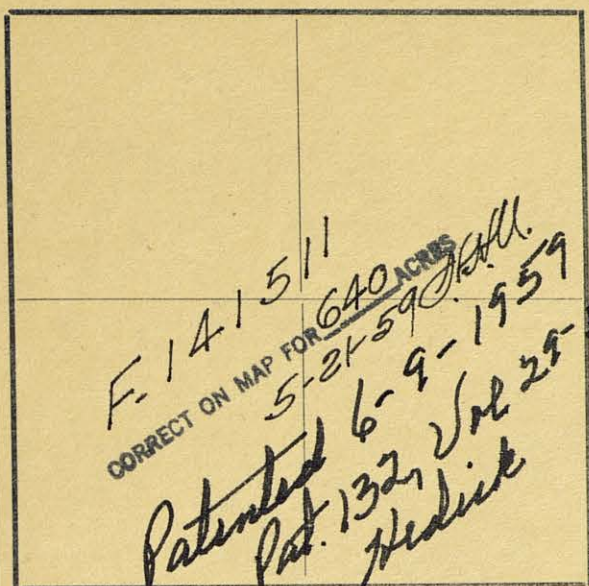 F. 141511
CORRECT ON MAP FOR 640 ACRES
5-21-59
Patented 6-9-1959
Pat. 132, Vol 29-
Hedick